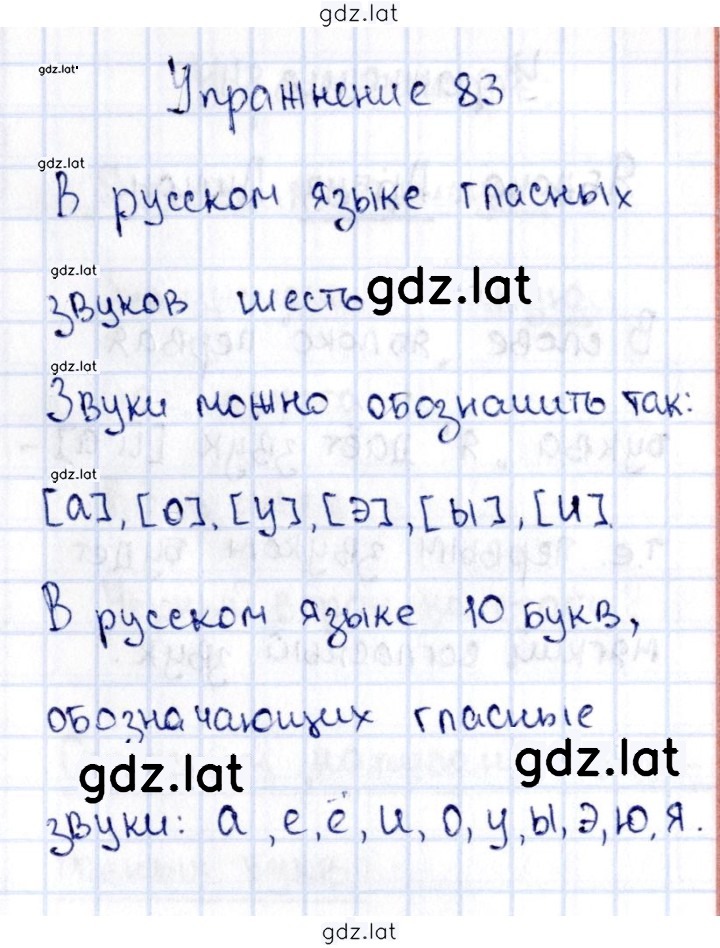 gdz.lat
gdz.lat
Упражнение 83
gdz.lat
В русском языке гласных
gdz.lat
звуков шесть gdz.lat
gdz.lat
Звуки можно обозначить так:
gdz.lat
[а], [о], [у], [э], [ы], [и].
В русском языке 10 букв,
обозначающих гласные
gdz.lat gdz.lat
звуки: а, е, ё, и, о, у, ы, э, ю, я.
gdz.lat